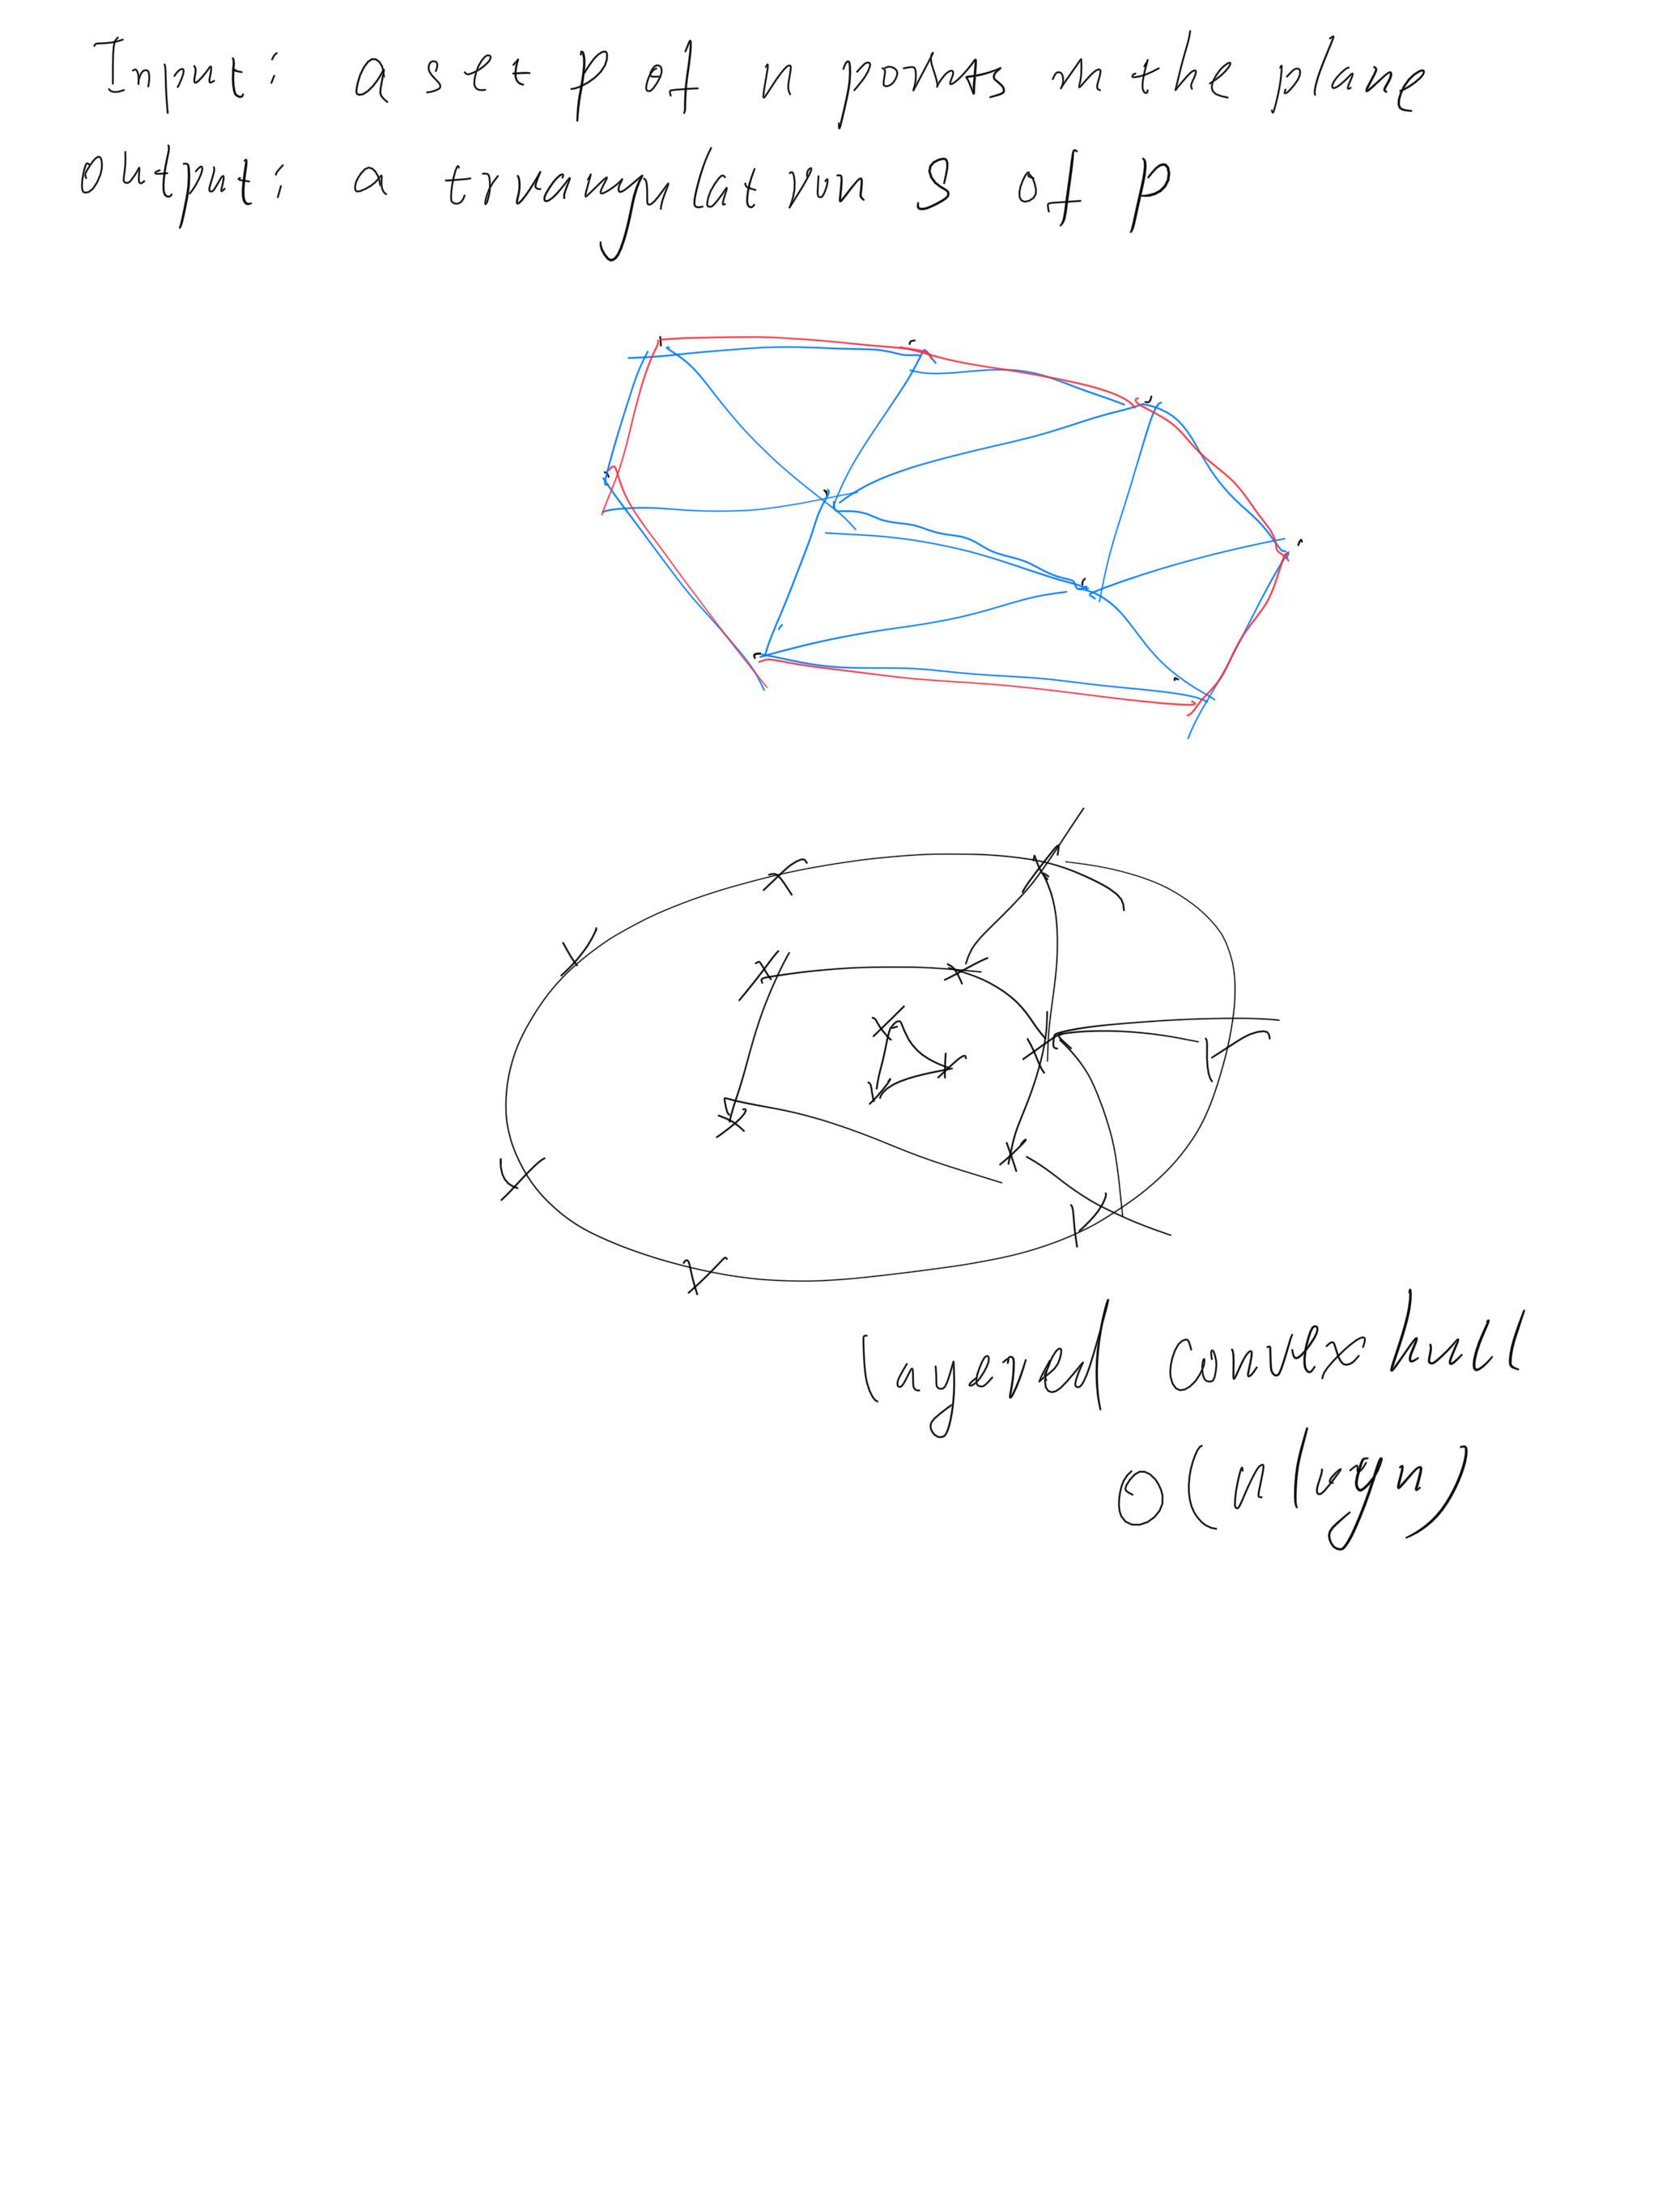 Input: a set P of n points in the plane
output: a triangulation S of P
layered convex hull
O(n logn)